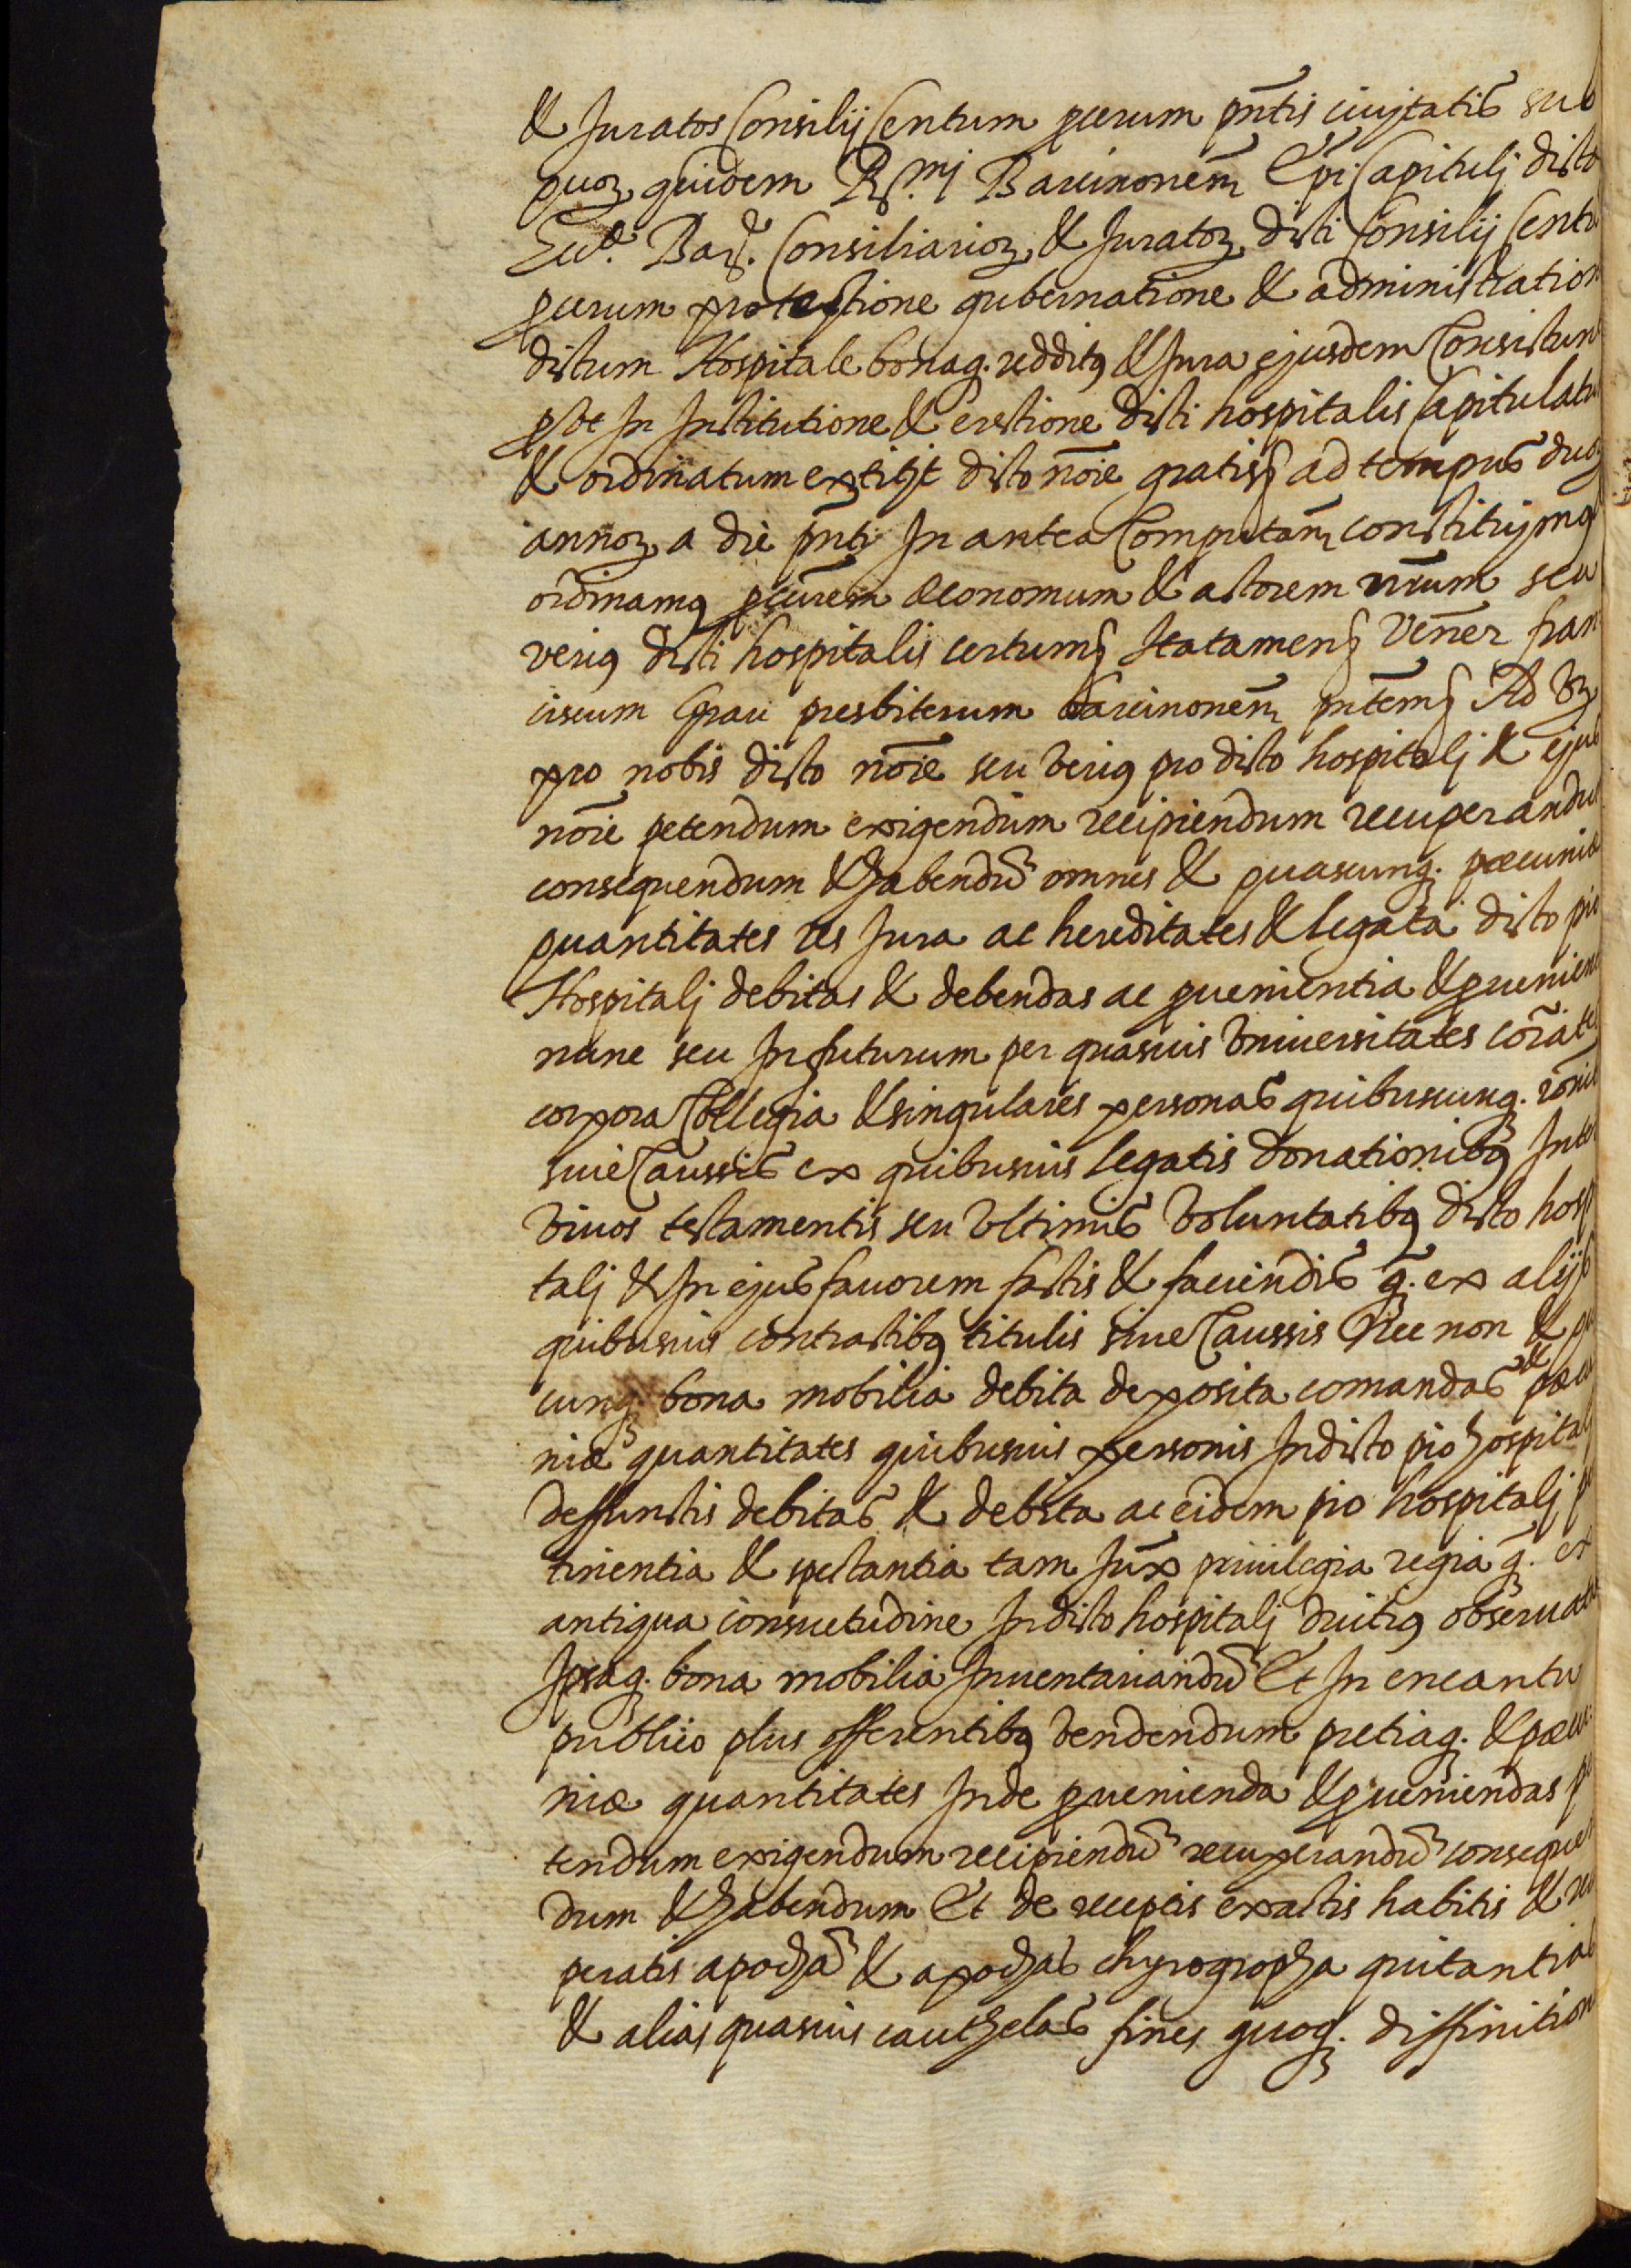 & Juratos Consilij Centum proerum pñtis ciujtatis sub
quoꝝ quidem R.mj Barcinoneñ Epi Capitulj dicto
Barꝰ. Consiliarioꝝ & Juratoꝝ dicti Consilij Centũ
protectione gubernatione & administration
dictum Hospitale bonaq. redditꝰ & Jura ejusdem Consistun
In Institutione & erectione dicti hospitalis Capitulatũ
& ordinatum extitjt dicto nõie gratis ad tempus duoꝝ
annoꝝ a die pñti In antea Computañ constitujmꝰ
ordinamꝰ œconomum & actorem nr̃um seu
verius dicti hospitalis certum Itatamen Veñer fran
ciscum Grau presbiterum barcinoneñ pñtem Ad
pro nobis dicto nõie seu verius pro dicto hospitalj & ejus
nõie petendum exigendum recipiendum recuperandũ
consequendum & habendũ omnes & quascunq. pœcuniæ
quantitates res Jura ac hereditates & legata dicto pio
Hospitalj debitas & debendas ac ꝓuenientia & ꝓuenien
nunc seu In futurum per quasuis vniuersitates
corpora Collegia & singulares personas quibuscunq.
siue Caussis ex quibusuis legatis donationibꝰ Inter
viuos testamentis seu vltimis voluntatibꝰ dicto hospi
talj & In ejus fauorem factis & faciendis q̃. ex alijs
quibusuis contractibꝰ titulis siue Caussis Nec non & qu
cunq. bona mobilia debita deposita comandas & pœcu
niæ quantitates quibusuis personis In dicto pio hospitalj
deffunctis debitas & debita ac eidem pio hospitalj
tinentia & spectantia tam Juxͣ priuilegia regia q̃. ex
antiqua consuetudine In dicto hospitalj diuitiꝰ obseruata
Ipsaq. bona mobilia Inuentariandũ Et In encantu
publico plus offerentibꝰ vendendum pretiaq. & pœcu
niæ quantitates Inde ꝓuenienda & ꝓueniendas pe
tendum exigendum recipiendũ recuperandũ consequen
dum & habendum Et de receptis exactis habitis & recu
peratis apocham & apochas chyrographa quitantias
& alias quasuis cauthelas fines quoq. diffinition